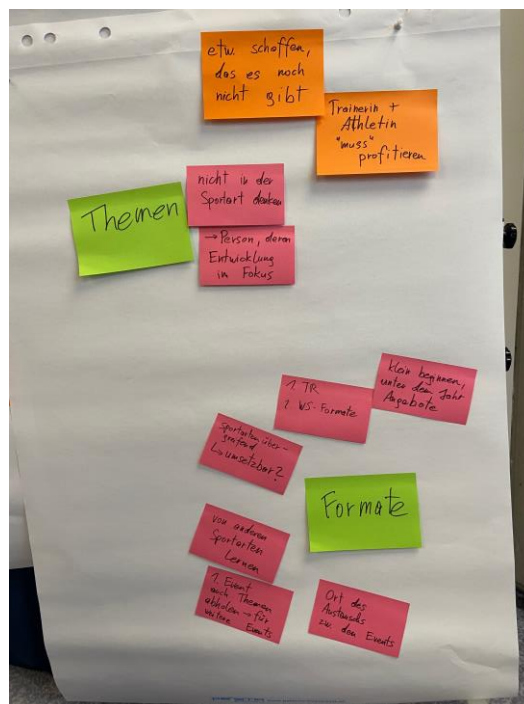 etw. schaffen,
das es noch
nicht gibt
Trainerin +
Athletin
"muss"
profitieren
Themen
nicht in der
Sportart denken
→ Person, deren
Entwicklung
im Fokus
klein beginnen,
unter dem Jahr
Angebote
1. TR
2. WS-Formate
Sportarten über-
greifend
umsetzbar?
Formate
von anderen
Sportarten
Lernen
1. Event
nach Themen
abholen → für
weitere Events
Ort des
Austauschs
zu den Events